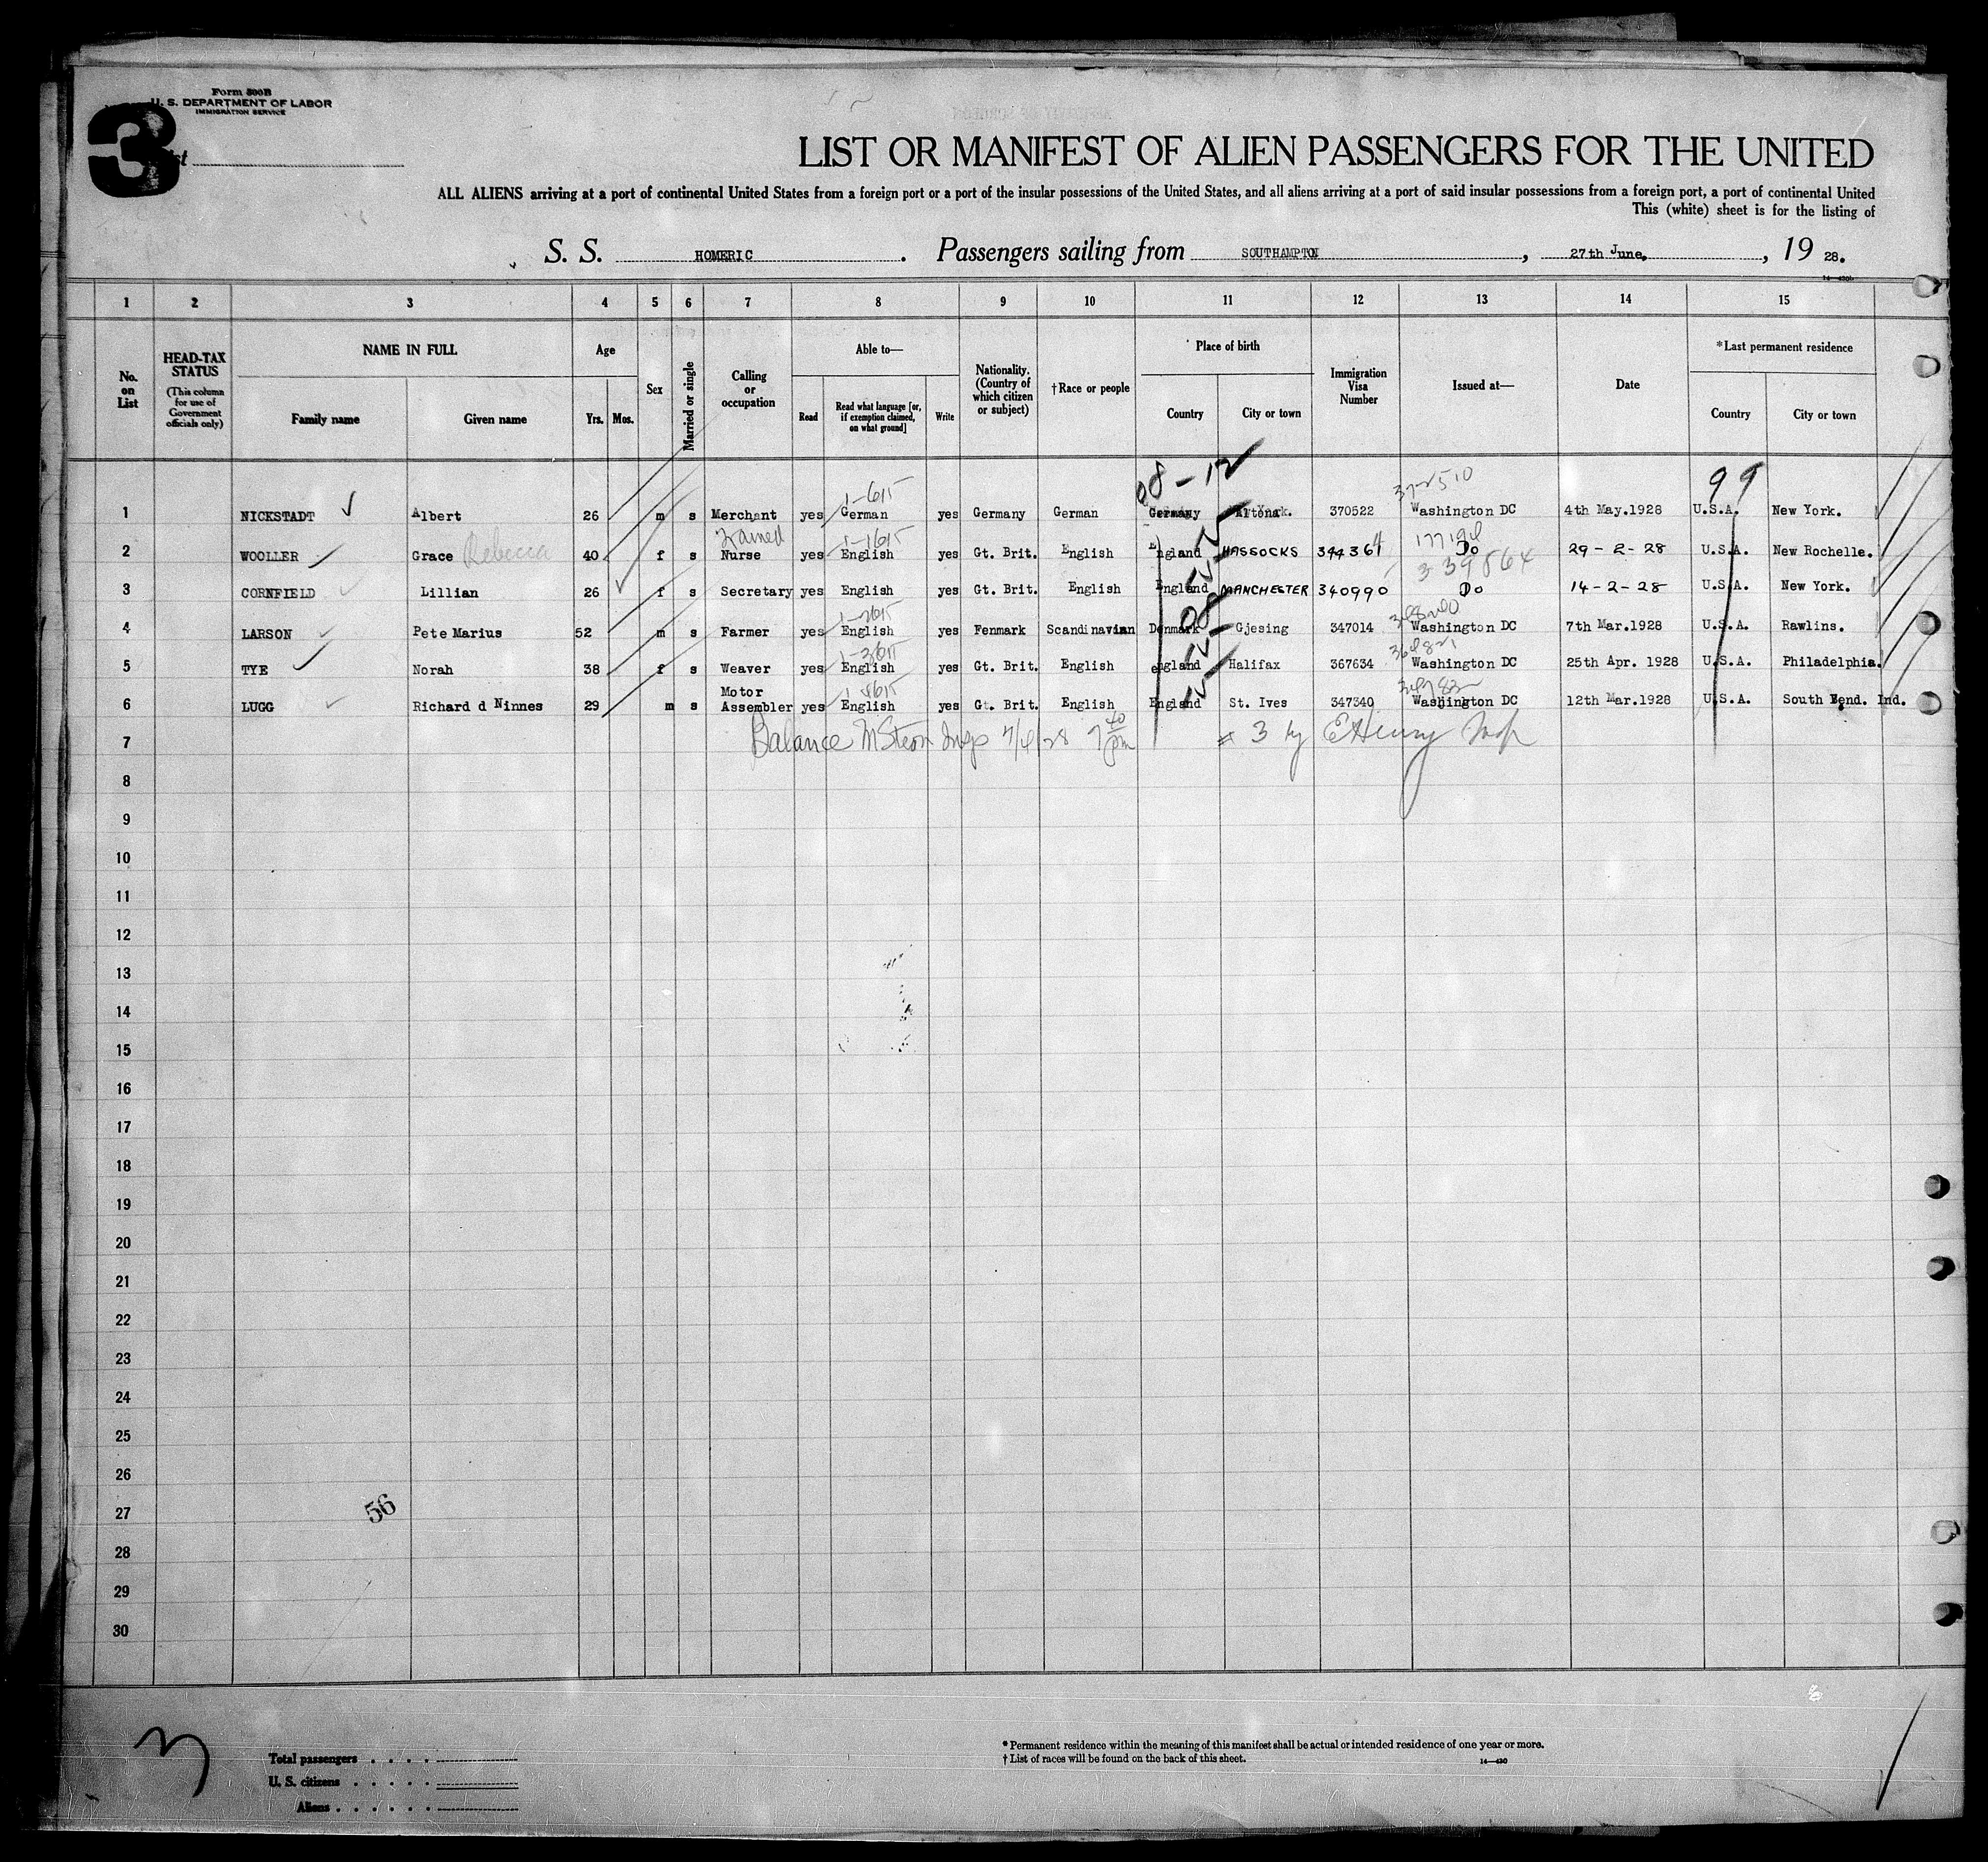 Form 500B
U. S. DEPARTMENT OF LABOR
IMMIGRATION SERVICE
3
LIST OR MANIFEST OF ALIEN PASSENGERS FOR THE UNITED
ALL ALIENS arriving at a port of continental United States from a foreign port or a port of the insular possessions of the United States, and all aliens arriving at a port of said insular possessions from a foreign port, a port of continental United
This (white) sheet is for the listing of
S. S. HOMERIC. Passengers sailing from SOUTHAMPTON, 27th June, 19 28.
1 2 3 4 5 6 7 8 9 10 11 12 13 14 15
No. on List
HEAD-TAX STATUS (This column for use of Government officials only)
NAME IN FULL
Family name Given name
Age
Yrs. Mos.
Sex
Married or single
Calling or occupation
Able to—
Read Read what language [or, if exemption claimed, on what ground] Write
Nationality. (Country of which citizen or subject)
†Race or people
Place of birth
Country City or town
Immigration Visa Number
Issued at—
Date
*Last permanent residence
Country City or town
08-12 99
1-615 372510
1 NICKSTADT Albert 26 m s Merchant yes German yes Germany German Germany Altona. 370522 Washington DC 4th May.1928 U.S.A. New York.
Trained 1-1615
2 WOOLLER Grace Rebecca 40 f s Nurse yes English yes Gt. Brit. English England HASSOCKS 344364 Do 29-2-28 U.S.A. New Rochelle.
339864
3 CORNFIELD Lillian 26 f s Secretary yes English yes Gt. Brit. English England MANCHESTER 340990 Do 14-2-28 U.S.A. New York.
1-2615
4 LARSON Pete Marius 52 m s Farmer yes English yes Fenmark Scandinavian Denmark Gjesing 347014 Washington DC 7th Mar.1928 U.S.A. Rawlins.
1-3615
5 TYE Norah 38 f s Weaver yes English yes Gt. Brit. English england Halifax 367634 Washington DC 25th Apr. 1928 U.S.A. Philadelphia.
6 LUGG Richard d Ninnes 29 m s Motor Assembler yes English yes Gt. Brit. English England St. Ives 347340 Washington DC 12th Mar.1928 U.S.A. South Bend. Ind.
7 Balance 7/4/28 7 40 pm # 3 by E Henry Insp
8
9
10
11
12
13
14
15
16
17
18
19
20
21
22
23
24
25
26
27
28
29
30
56
Total passengers
U. S. citizens
Aliens
* Permanent residence within the meaning of this manifest shall be actual or intended residence of one year or more.
† List of races will be found on the back of this sheet.
14—430